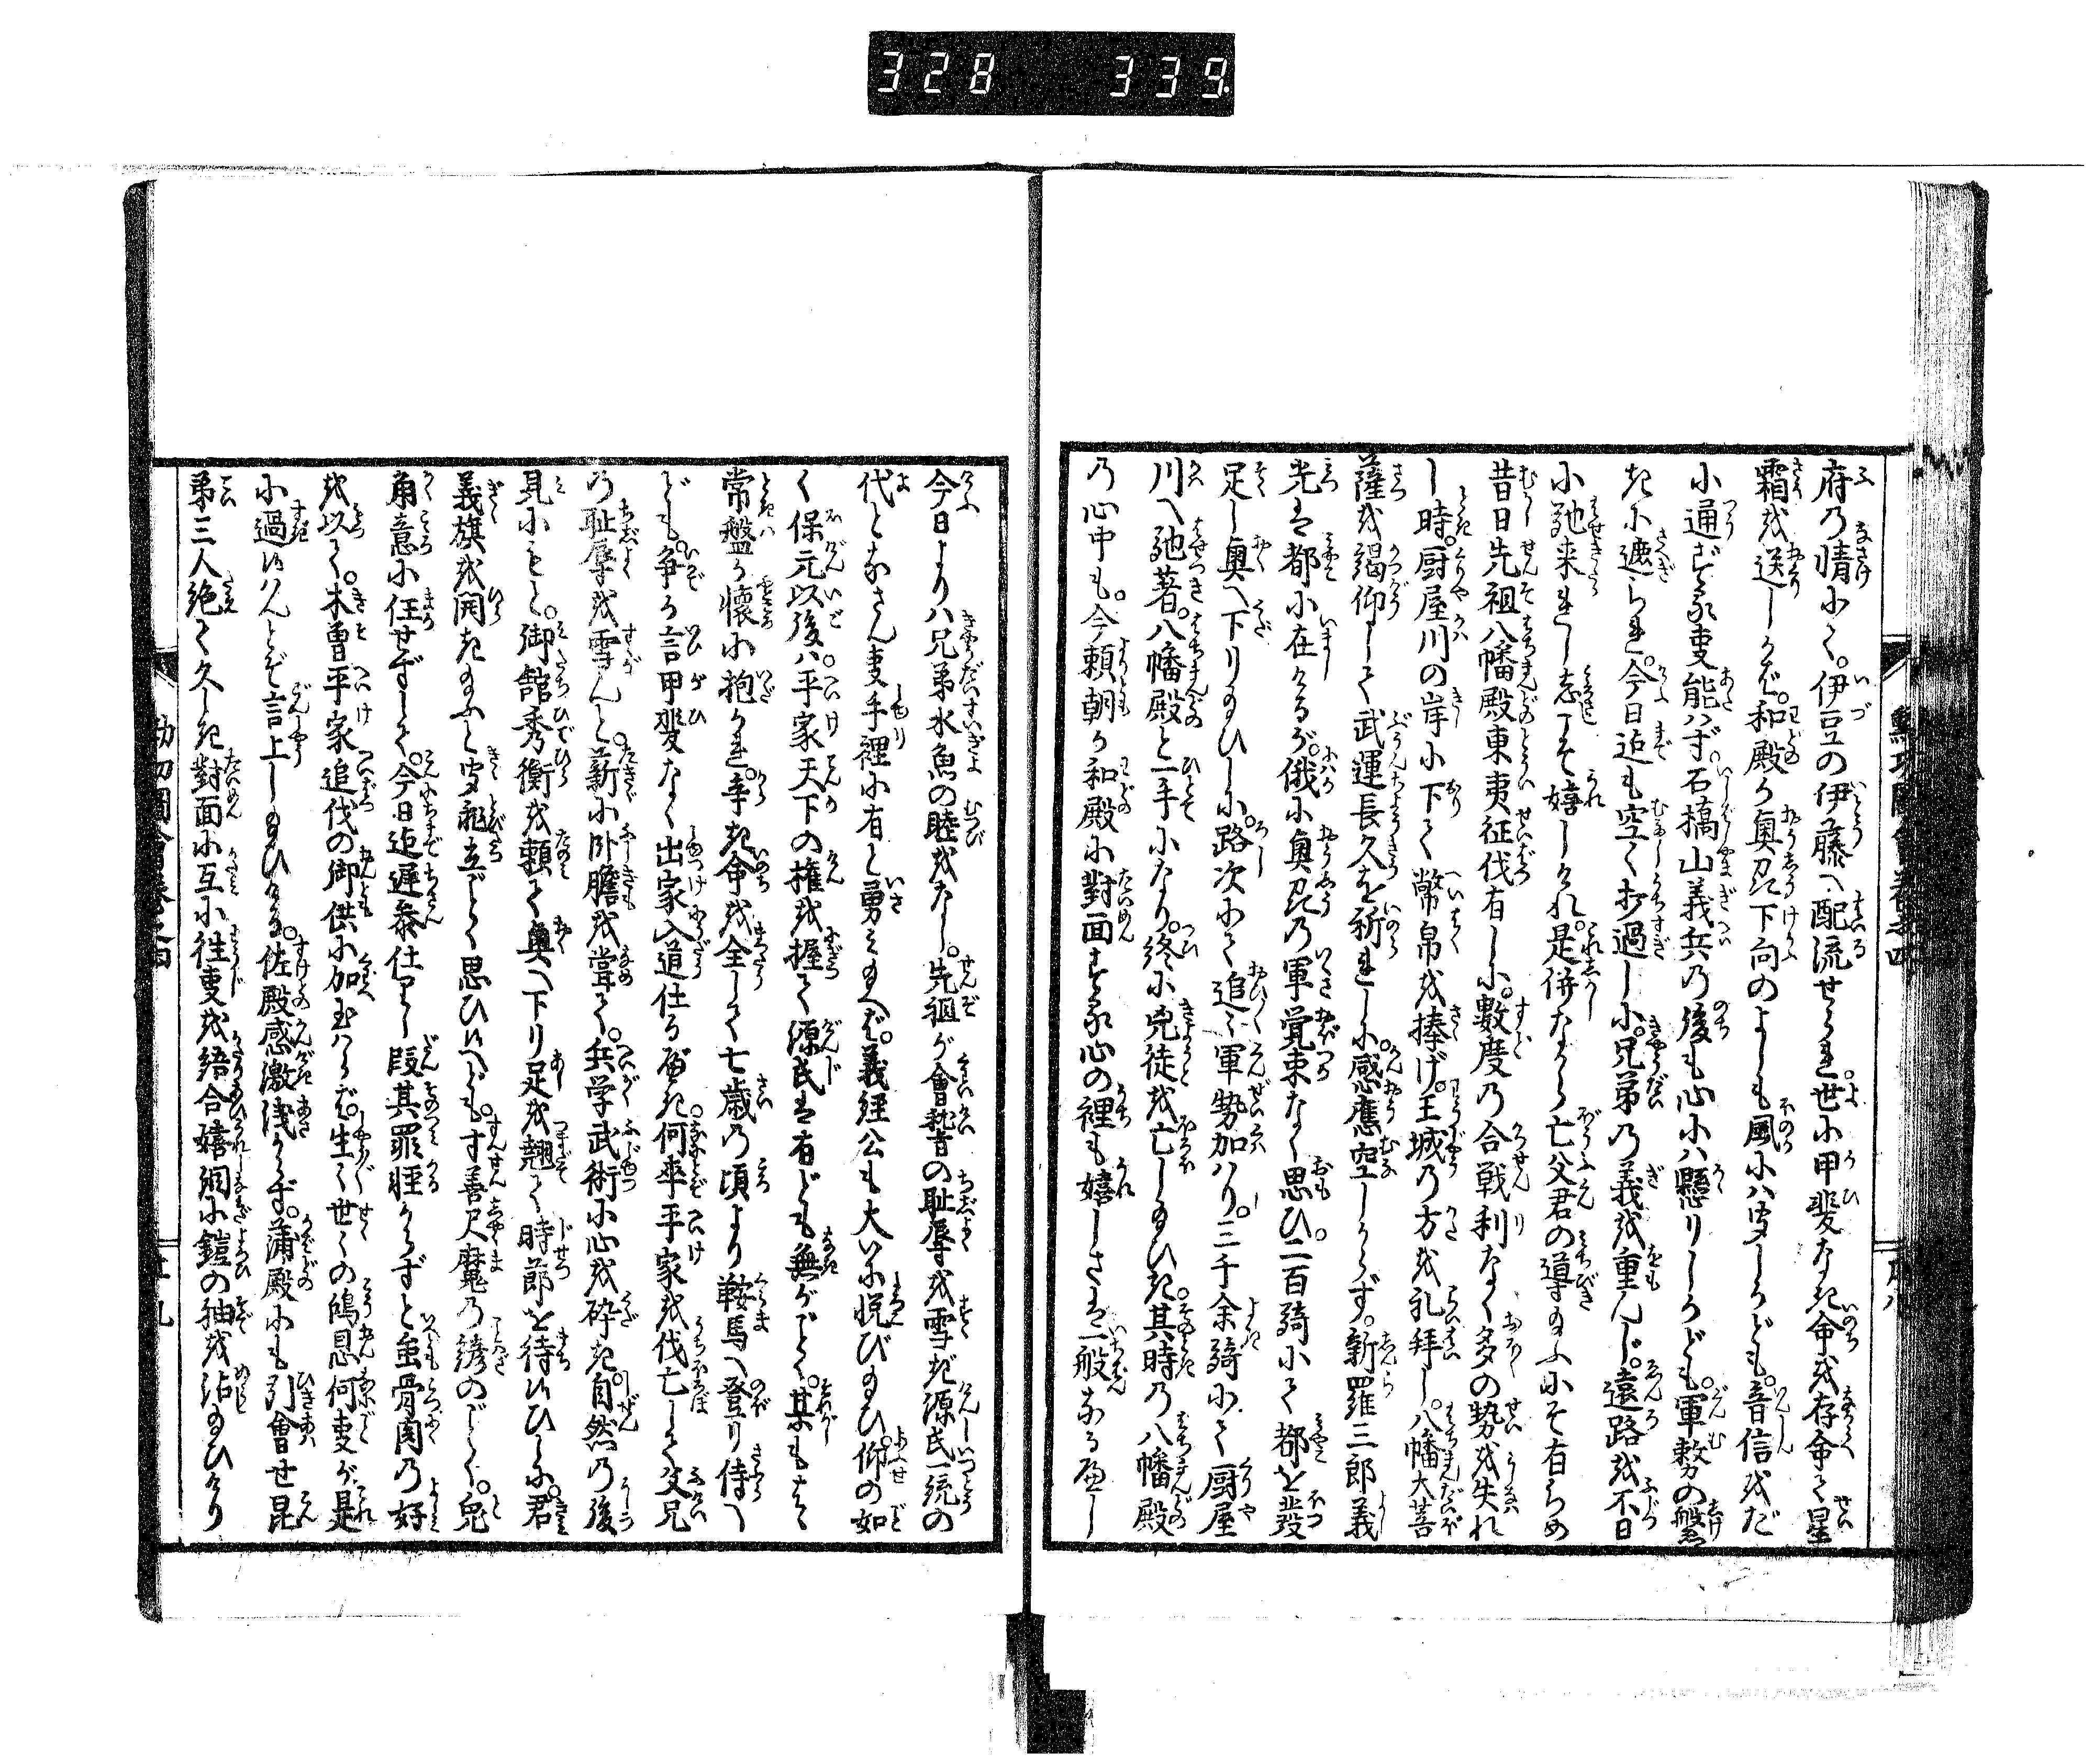 328 339
府乃情小て。伊豆の伊藤へ配流せられ。世小甲斐なき命を存命て星
霜を送しかば。和殿が奥州下向のよしも風小ハ聞しかども。音信をだ
小通ざる事能ハず。石橋山義兵乃後も心小ハ懸りしかども。軍務の繁
きに遮られ。今日迄も空く打過し小。兄弟乃義を重んじ。遠路を不日
小馳来られし志こそ嬉しけれ。是併ながら亡父君の導給ふ小そ有らめ
昔日先祖八幡殿東夷征伐有し小。數度乃合戦利なく多の勢を失れ
し時。厨屋川の岸小下て幣帛を捧げ。王城乃方を礼拝し。八幡大菩
薩を渇仰して武運長久を祈られし小。感應空しからず。新羅三郎義
光は都小在けるが。俄小奥州乃軍覚束なく思ひ。二百騎小て都を發
足し奥へ下り給ひし小。路次小て追々軍勢加ハり。三千余騎小て厨屋
川へ馳著。八幡殿と一手小なり。終小兇徒を亡し給ひき。其時乃八幡殿
乃心中も。今頼朝が和殿小對面する心の裡も嬉しさは一般なるべし
今日よりハ兄弟水魚の睦をなし。先祖が會稽の耻辱を雪ぎ源氏一統の
代となさん事手裡小有と勇み給へば。義経公も大に悦び給ひ。仰の如
く保元以後ハ。平家天下の権を握て源氏は有ども無がごとく。某もさて
常盤が懐小抱かれ。辛き命を全して七歳乃頃より鞍馬へ登り侍へ
ども。争か言甲斐なく出家入道仕るべき。何卒平家を伐亡して父兄
乃耻辱を雪んと。薪小臥膽を甞て。兵学武術小心を砕き。自然乃後
見小もと。御館秀衡を頼て奥へ下り足を翹て時節を待侍ひしに。君
義旗を開き給ふと聞飛立ごとく思ひ侍へども。す善尺麻乃諺のごとく。兎
角意小任せずして。今日迄遲参仕りし段其罪軽からずと雖骨肉乃好
を以て。木曽平家追伐の御供小加玉ハらば。生々世々の鴻恩何事が是
小過侍ハんとぞ言上し給ひける。佐殿感激浅からず。蒲殿小も引會せ昆
弟三人絶て久しき對面小互小往事を語合嬉涙小鎧の袖を沾給ひけり